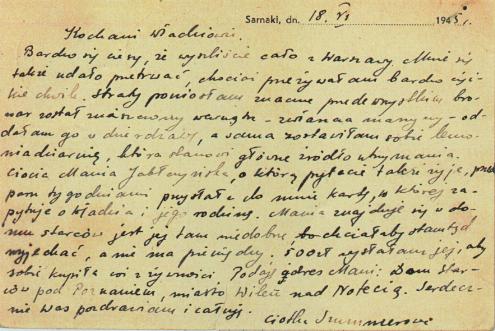 Sarnaki, dn. 18. VI 1945 r.
Kochani Władziowie.
Bardzo się cieszę, że wyszliście cało z Warszawy. Mnie się
także udało przetrwać, chociaż przeżywałam bardzo cięż-
kie chwile. Straty poniosłam znaczne przede wszystkim bro-
war został zniszczony warsztat - maszyny - od-
dałam go w dzierżawę, a sama zostawiłam sobie lemo-
niadziarnię, która stanowi główne źródło utrzymania.
Ciocia Mania Jabłczyńska, o którą pytacie także żyje, przed
paru tygodniami przysłała do mnie kartę, w której za-
pytuje o Władzia i jego rodzinę. Mania znajduje się w do-
mu starców jest jej tam niedobrze, bo chciałaby stamtąd
wyjechać, a nie ma pieniędzy. 500 zł wysłałam jej, aby
sobie kupiła coś z żywności. Podaję adres Mani: Dom Star-
ców pod Poznaniem, miasto Wieleń nad Notecią. Serdecz-
nie Was pozdrawiam i całuję.
Ciotka